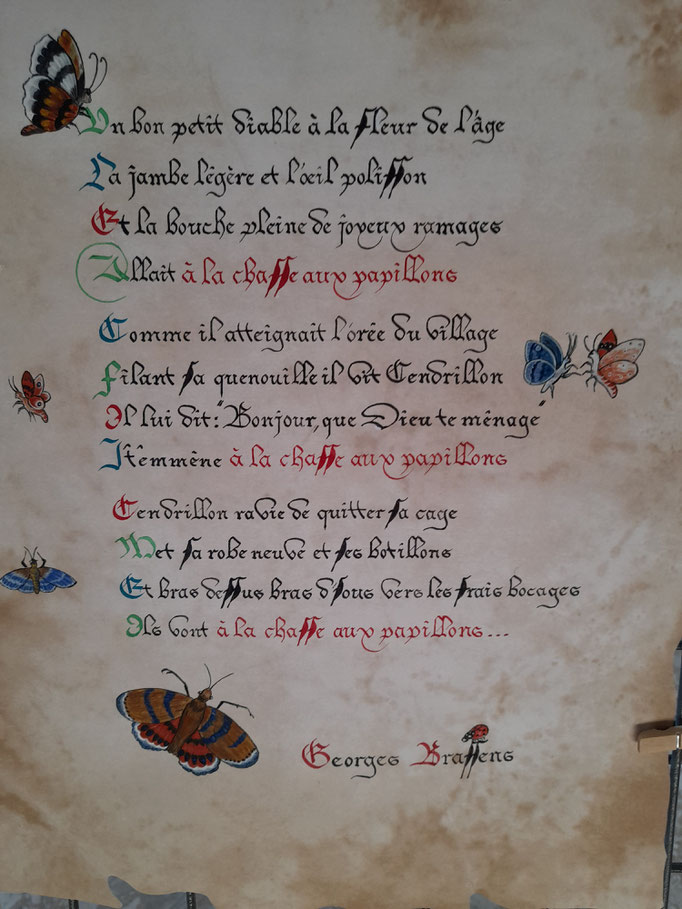 Un bon petit diable à la fleur de l'âge
La jambe légère et l'œil polisson
Et la bouche pleine de joyeux ramages
Allait à la chasse aux papillons
Comme il atteignait l'orée du village
Filant sa quenouille il vit Cendrillon
Il lui dit: "Bonjour, que Dieu te ménage"
J't'emmène à la chasse aux papillons
Cendrillon ravie de quitter sa cage
Met sa robe neuve et ses botillons
Et bras dessus bras d'sous vers les frais bocages
Ils vont à la chasse aux papillons...
Georges Brassens